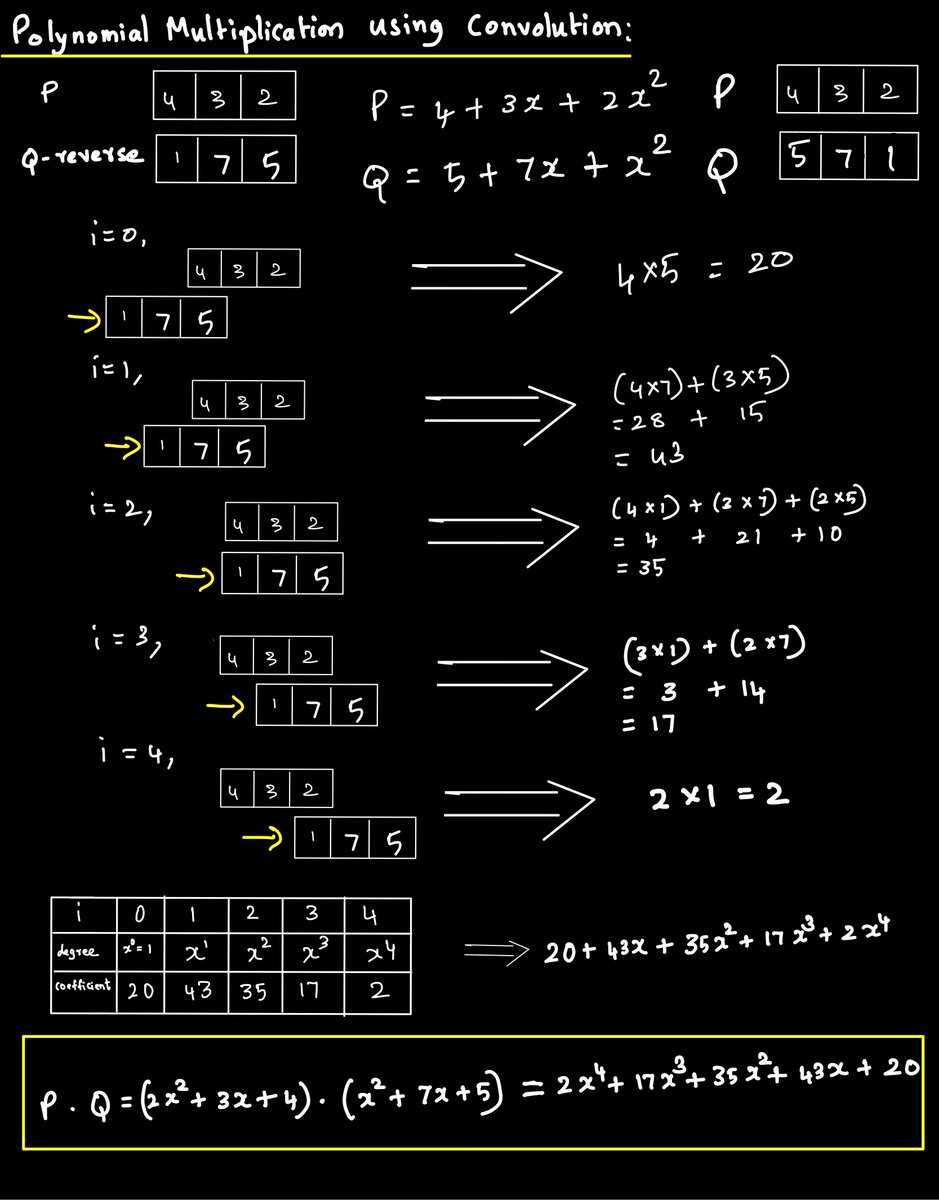 Polynomial Multiplication using Convolution:
P 4 3 2 P = 4 + 3x + 2x² P 4 3 2
Q-reverse 1 7 5 Q = 5 + 7x + x² Q 5 7 1
i=0,
4 3 2
→ 1 7 5
⟹ 4×5 = 20
i=1,
4 3 2
→ 1 7 5
⟹ (4×7)+(3×5)
=28 + 15
= 43
i=2,
4 3 2
→ 1 7 5
⟹ (4×1) + (3×7) + (2×5)
= 4 + 21 + 10
= 35
i = 3,
4 3 2
→ 1 7 5
⟹ (3×1) + (2×7)
= 3 + 14
= 17
i = 4,
4 3 2
→ 1 7 5
⟹ 2×1 = 2
i 0 1 2 3 4
degree x⁰=1 x¹ x² x³ x⁴
coefficient 20 43 35 17 2
⟹ 20 + 43x + 35x² + 17x³ + 2x⁴
P . Q = (2x² + 3x + 4) . (x² + 7x + 5) = 2x⁴ + 17x³ + 35x² + 43x + 20